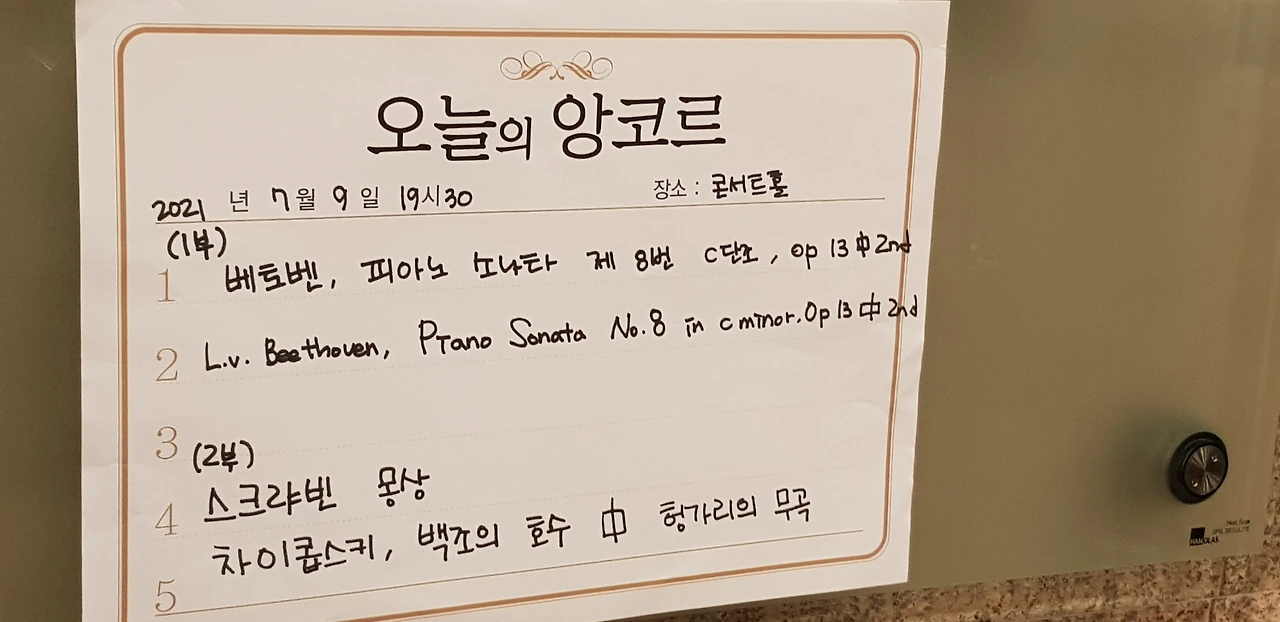 오늘의 앙코르
2021 년 7월 9일 19시30 장소 : 콘서트홀
(1부)
1 베토벤, 피아노 소나타 제 8번 C단조, Op 13 中 2nd
2 L.v. Beethoven, Piano Sonata No.8 in c minor. Op 13 中 2nd
3 (2부)
4 스크랴빈 몽상
차이콥스키, 백조의 호수 中 헝가리의 무곡
5
HANGLAS